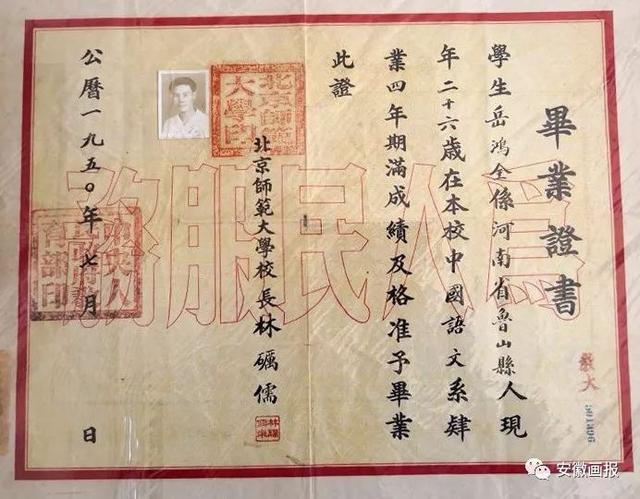 畢業證書
學生岳鴻全係河南省魯山縣人現
年二十六歲在本校中國語文系肆
業四年期滿成績及格准予畢業
此證
北京師範大學校長林礪儒
公曆一九五〇年七月　日
為人民服務
北京師範大學印
教大
安徽画报